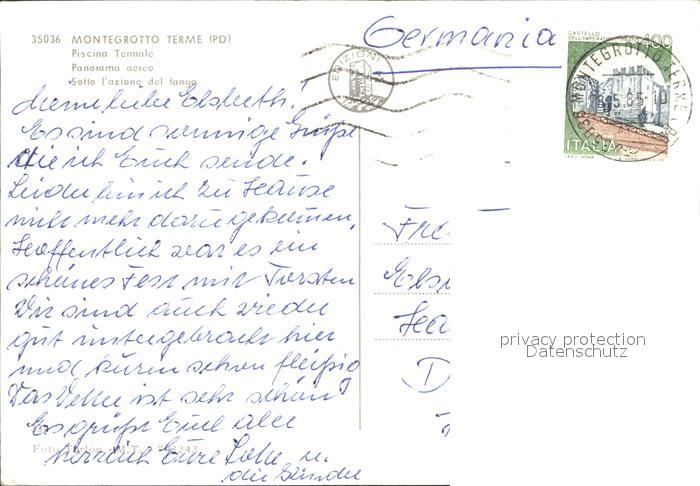 35036 MONTEGROTTO TERME (PD)
Piscina Termale
Panorama aereo
Sotto l'azione del fango
Meine liebe Elsbeth!
Es sind sonnige Grüße
die ich Euch sende.
Leider bin ich zu Hause
nicht mehr dazu gekommen.
Hoffentlich war es ein
schönes Fest mit Torsten
Wir sind auch wieder
gut untergebracht hier
und kuren schon fleißig
Das Wetter ist sehr schön
Es grüßt Euch alle
herzlich Eure u.
die Kinder
Germania
CASTELLO
DELL'IMPERATORE
400
ITALIA
MONTEGROTTO TERME
EDIZIONI
privacy protection
Datenschutz